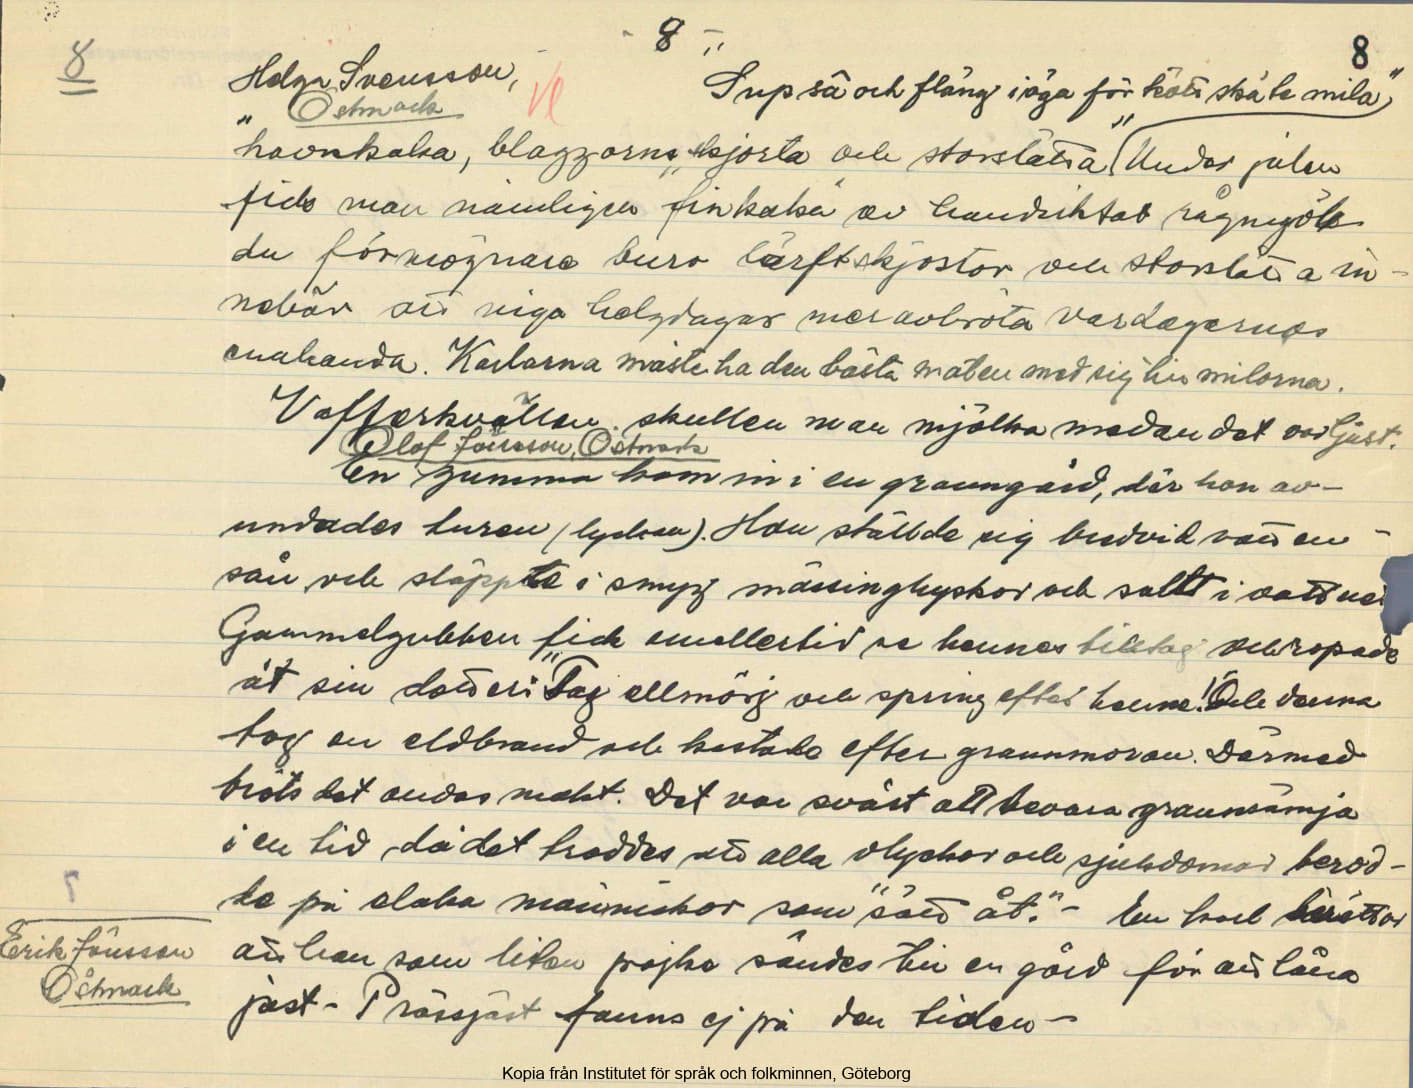 8
8
8
Helga Svensson,
Östmark
"Sup så och fläng i öga för kött ska te mila"
"havrkaka, blaggarns skjorta och storslåtta" Under julen
fick man nämligen "finkaka" av handsiktat rågmjöl
de förmögnare buro lärftskjortor och storslåtta in-
nebär att inga helgdagar mer avbröta vardagarnas
enahanda. Karlarna måste ha den bästa maten med sig till milorna.
Vafferkvällen skullen man mjölka medan det var ljust.
Olof Jönsson, Östmark
En gumma kom in i en granngård, där hon av-
undades turen (lyckan). Hon ställde sig bredvid vatten-
sån och släppte i smyg mässinghyskor och salt i vattnet
Gammelgubben fick emellertid se hennes tilltag och ropade
åt sin dotter: "Tag ellmörj och spring efter henne!" Och denna
tog en eldbrand och kastade efter grannmoran. Därmed
bröts det ondas makt. Det var svårt att bevara grannsämja
i en tid, då det troddes att alla olyckor och sjukdomar berod-
de på elaka människor som "satt åt." - En karl berättar
Erik Jönsson
Östmark
att han som liten pojke sändes till en gård för att låna
jäst - Pressjäst fanns ej på den tiden -
Kopia från Institutet för språk och folkminnen, Göteborg